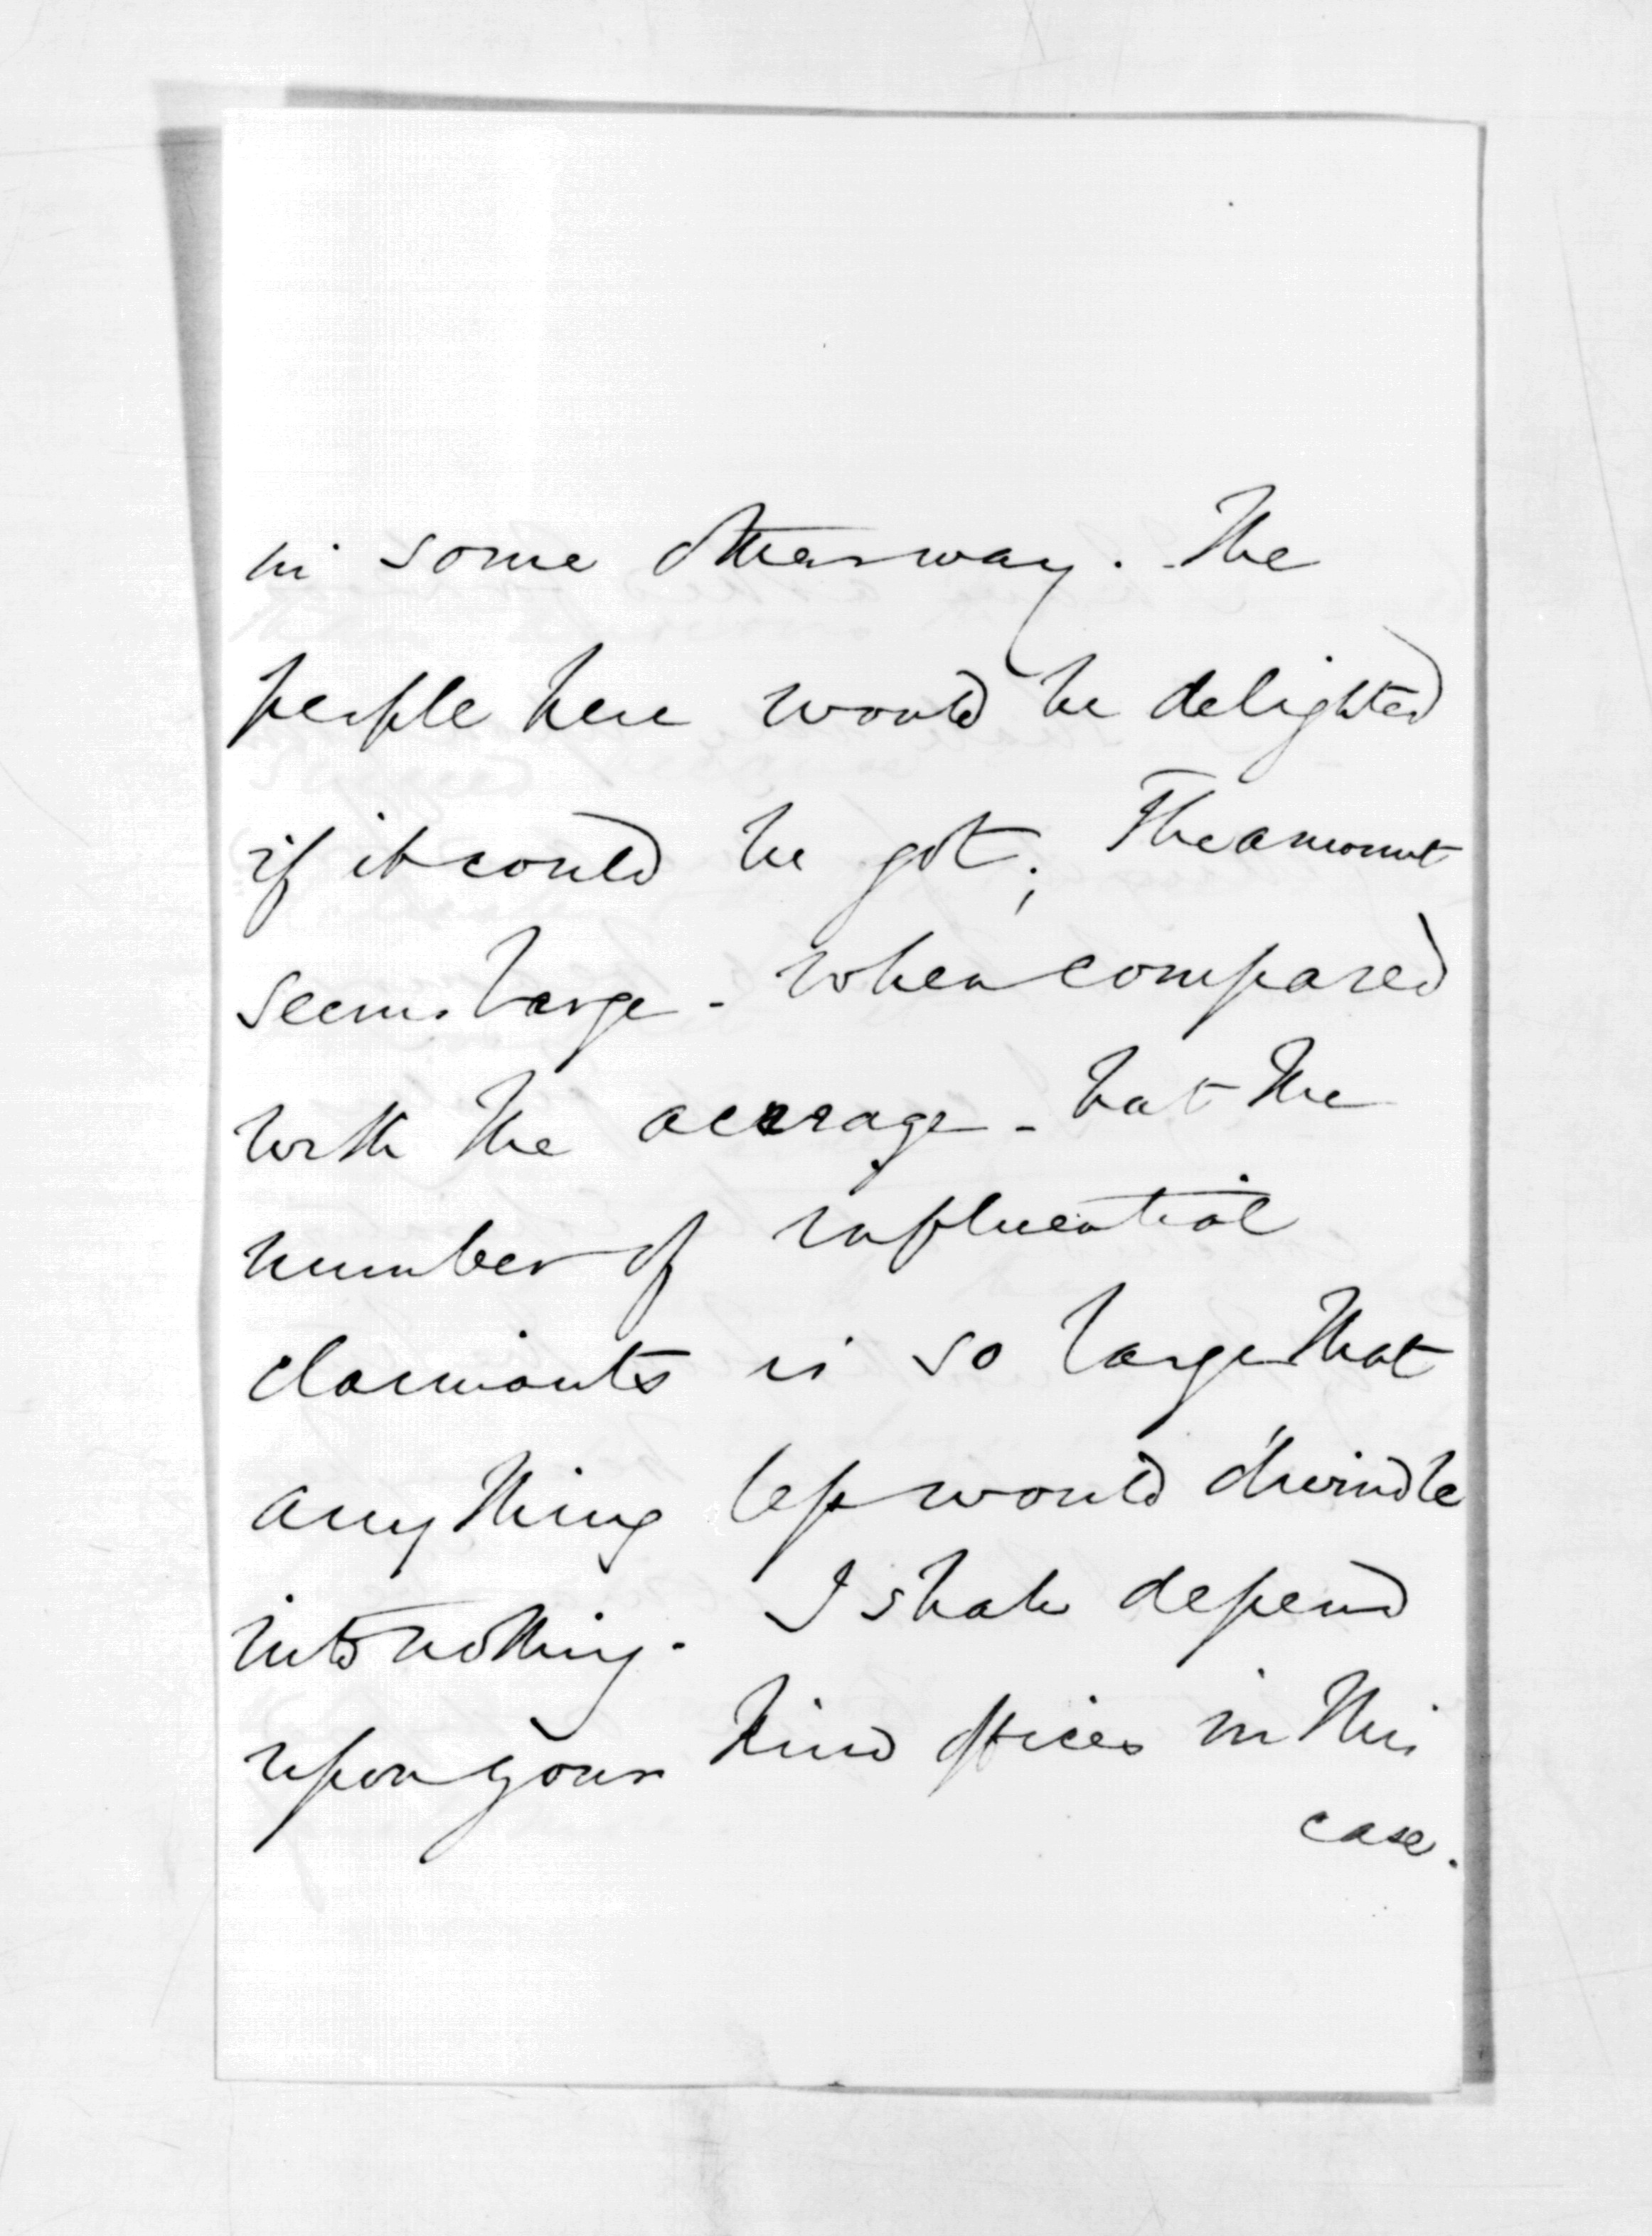 in some other way. The
people here would be delighted
if it could be got; The amount
seems large - when compared
with the acerage - but the
number of influential
claimants is so large that
any thing less would dwindle
into nothing. I shall depend
upon your kind offices in this
case.